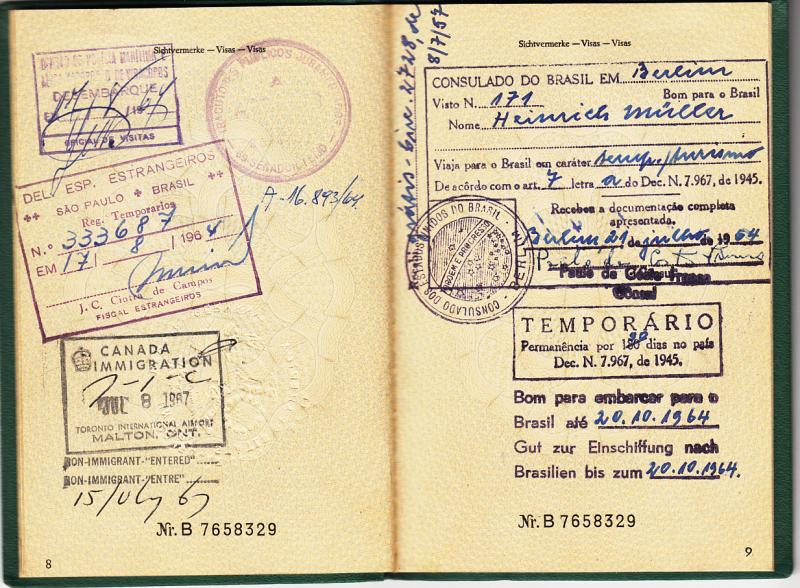 Sichtvermerke — Visas — Visas
DESEMBARQUE
OFICIAL DE VISITAS
DEL. ESP. ESTRANGEIROS
SÃO PAULO BRASIL
Reg. Temporarios
N.º 333687
EM 17 / 8 / 1964
J. C. Ciotra de Campos
FISCAL ESTRANGEIROS
A-16.893/64
CANADA
IMMIGRATION
JUL 8 1967
TORONTO INTERNATIONAL AIRPORT
MALTON, ONT.
NON-IMMIGRANT-"ENTERED"
NON-IMMIGRANT-"ENTRE"
15/July 67
Nr. B 7658329
8
8/7/57
Sichtvermerke — Visas — Visas
CONSULADO DO BRASIL EM Berlim
Visto N. 171 Bom para o Brasil
Nome Heinrich Müller
Viaja para o Brasil em caráter temp./turismo
De acôrdo com o art. 7 letra a do Dec. N. 7.967, de 1945.
Recebeu a documentação completa
apresentada.
Berlim 21 de julho de 1964
Cônsul
CONSULADO DOS ESTADOS UNIDOS DO BRASIL - BERLIM
TEMPORÁRIO
Permanência por 180 90 dias no país
Dec. N. 7.967, de 1945.
Bom para embarcar para o
Brasil até 20.10.1964
Gut zur Einschiffung nach
Brasilien bis zum 20.10.1964.
Nr. B 7658329
9